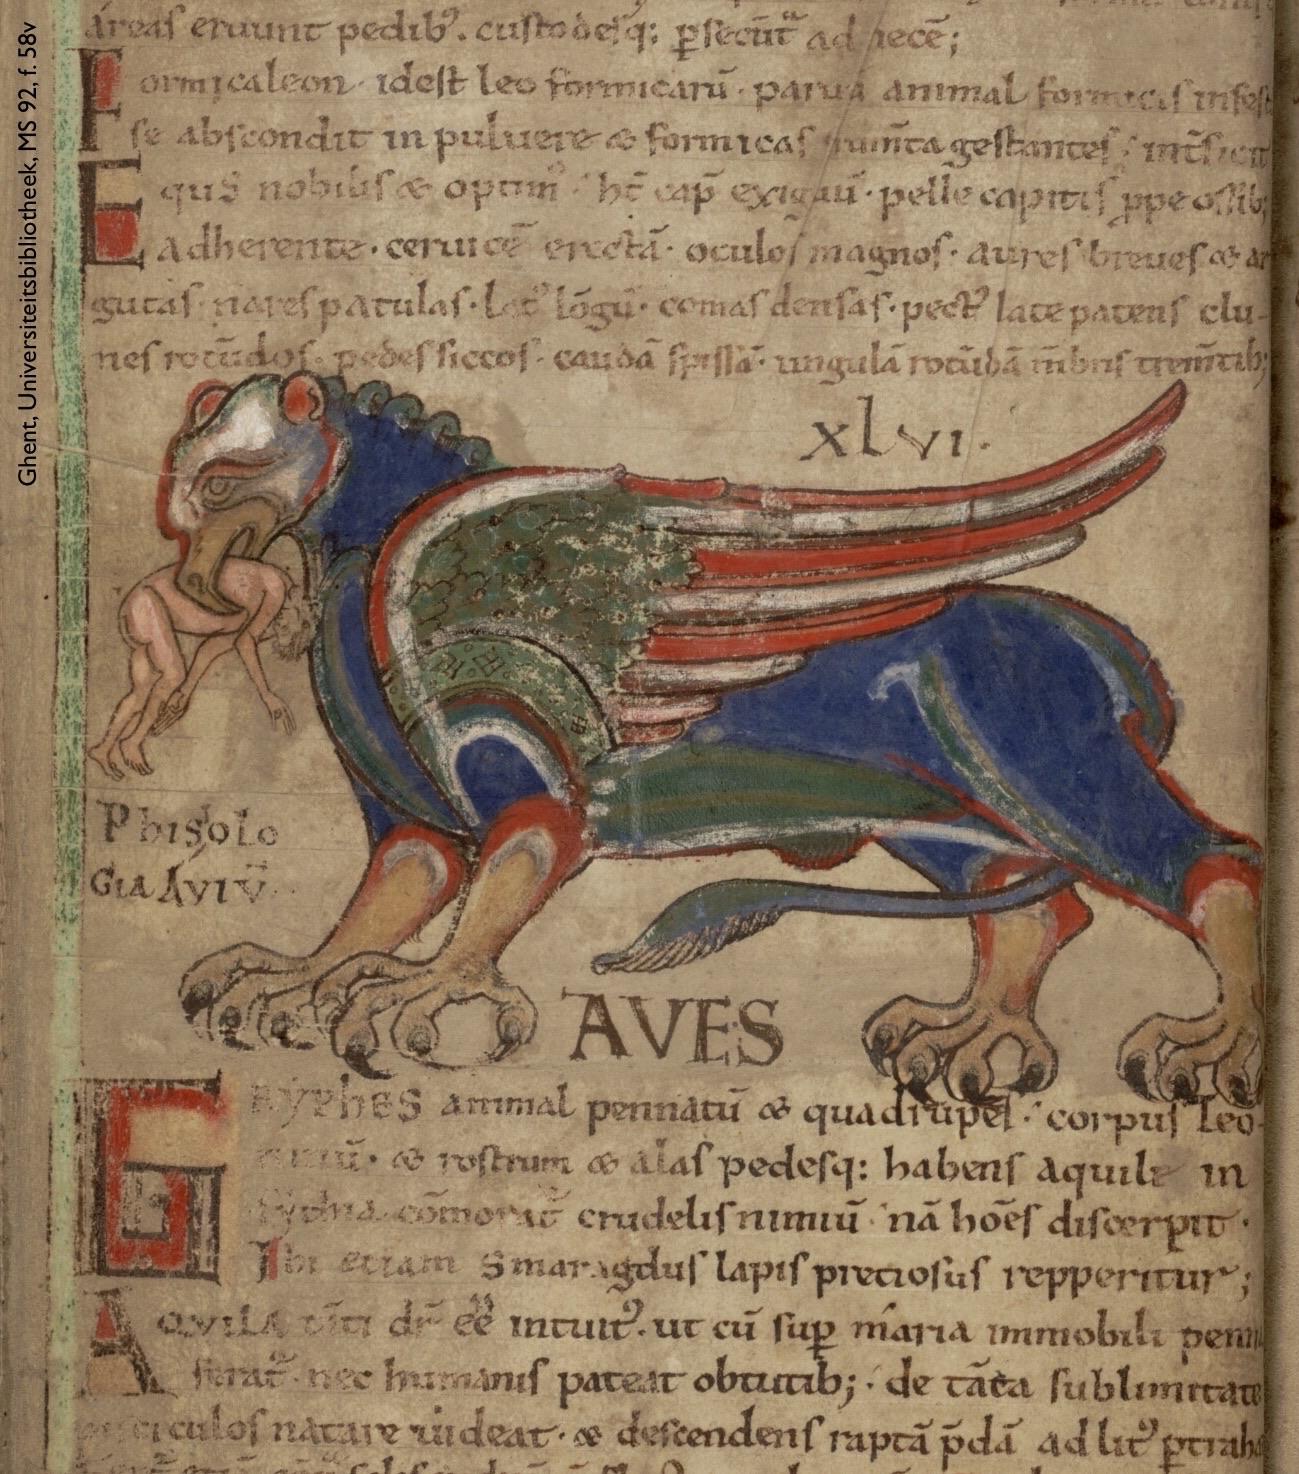 Ghent, Universiteitsbibliotheek, MS 92, f. 58v
areas eruunt pedib᷒. custodesq; ꝑsecūt ad necē;
Formicaleon· idest leo formicarū· parua animal formicis infes
se abscondit in puluere & formicas frumta gestantes
Equs nobilis & optim᷒ h̄t cap̄ exiguū· pelle capitis ꝓpe ossib;
adherente· ceruicē erectā· oculos magnos· aures breues & ar
gutas· nares patulas· Lat᷒ lōgū· comas densas· pect᷒ late patens clu-
nes rotūdos· pedes siccos· caudā spissā· ungulā rotūdā
xlvi·
Phisolo
Gia Aviv̄
AVES
GRYPhES animal pennatū & quadrupes· corpus Leo-
ninū· & rostrum & alas pedesq: habens aquile in
Sythia cōmorat̄ crudelis nimiū nā hoēs discerpit·
Ibi etiam Smaragdus lapis preciosus repperitur;
AQVILA dr̄ eē intuit᷒. ut cū suꝑ maria immobili penna
ferat̄ nec humanis pateat obtutib; de tāta sublimitate
pisciculos natare uideat· & descendens raptā p̄dā ad lit᷒ ꝑtraha